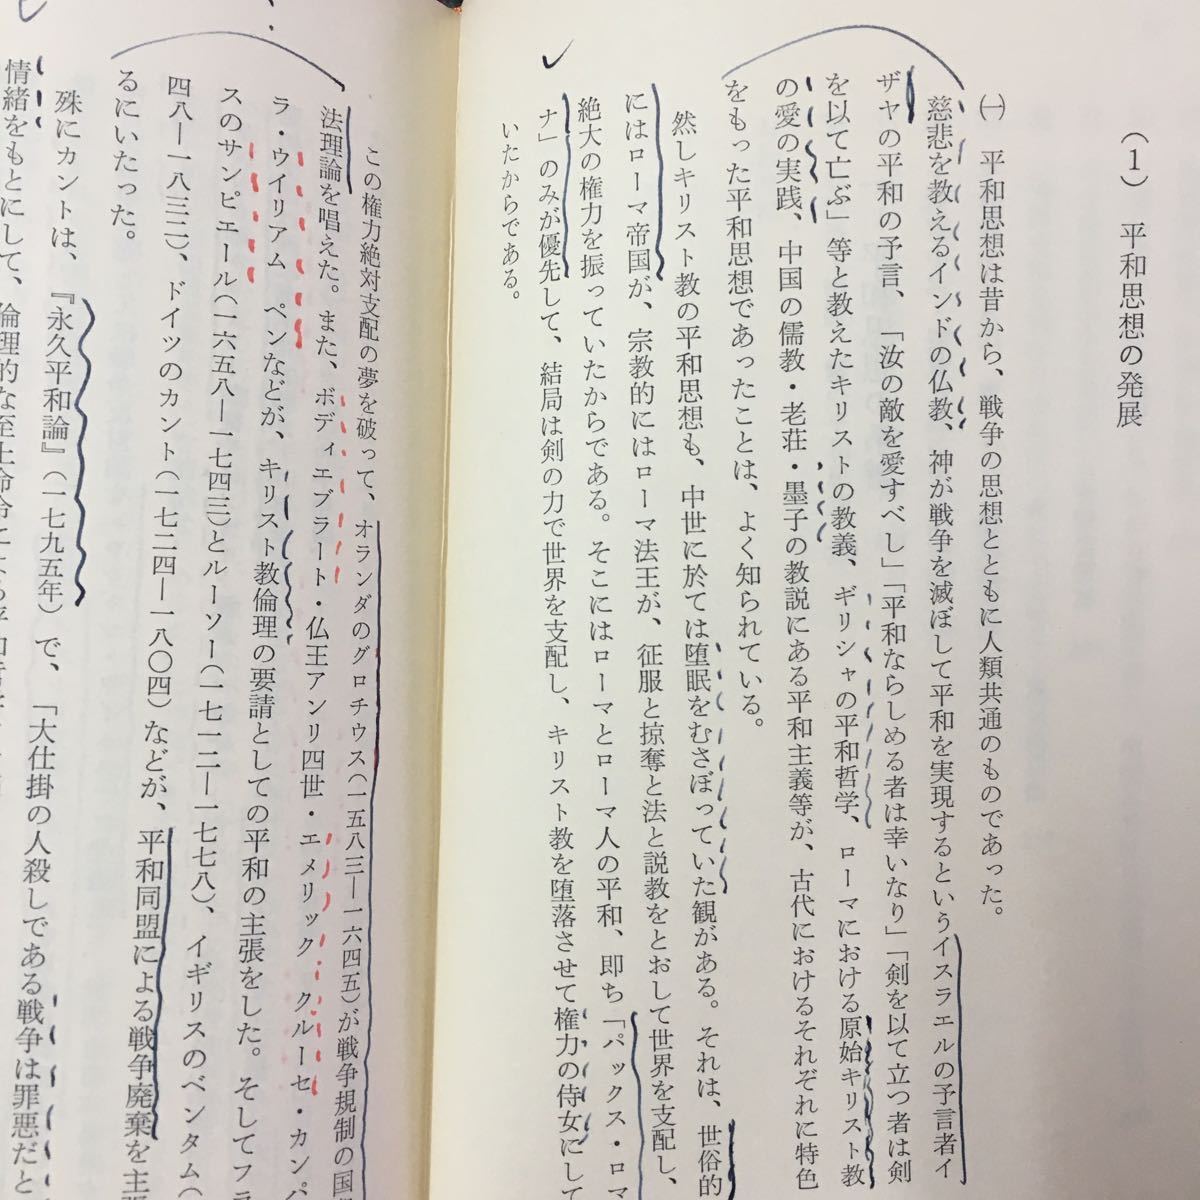 （１）　平和思想の発展
㈠　平和思想は昔から、戦争の思想とともに人類共通のものであった。
慈悲を教えるインドの仏教、神が戦争を滅ぼして平和を実現するというイスラエルの予言者イ
ザヤの平和の予言、「汝の敵を愛すべし」「平和ならしめる者は幸いなり」「剣を以て立つ者は剣
を以て亡ぶ」等と教えたキリストの教義、ギリシャの平和哲学、ローマにおける原始キリスト教
の愛の実践、中国の儒教・老荘・墨子の教説にある平和主義等が、古代におけるそれぞれに特色
をもった平和思想であったことは、よく知られている。
然しキリスト教の平和思想も、中世に於ては堕眠をむさぼっていた観がある。それは、世俗的
にはローマ帝国が、宗教的にはローマ法王が、征服と掠奪と法と説教をとおして世界を支配し、
絶大の権力を振っていたからである。そこにはローマとローマ人の平和、即ち「パックス・ロマ
ナ」のみが優先して、結局は剣の力で世界を支配し、キリスト教を堕落させて権力の侍女にして
いたからである。
この権力絶対支配の夢を破って、オランダのグロチウス（一五八三—一六四五）が戦争規制の国
法理論を唱えた。また、ボディエブラート・仏王アンリ四世・エメリック　クルーセ・カンパ
ラ・ウイリアム　ペンなどが、キリスト教倫理の要請としての平和の主張をした。そしてフラ
スのサンピエール（一六五八—一七四三）とルーソー（一七一二—一七七八）、イギリスのベンタム（
四八—一八三二）、ドイツのカント（一七二四—一八〇四）などが、平和同盟による戦争廃棄を主張
るにいたった。
殊にカントは、『永久平和論』（一七九五年）で、「大仕掛の人殺しである戦争は罪悪だと
情緒をもとにして、倫理的な至上命令による平和